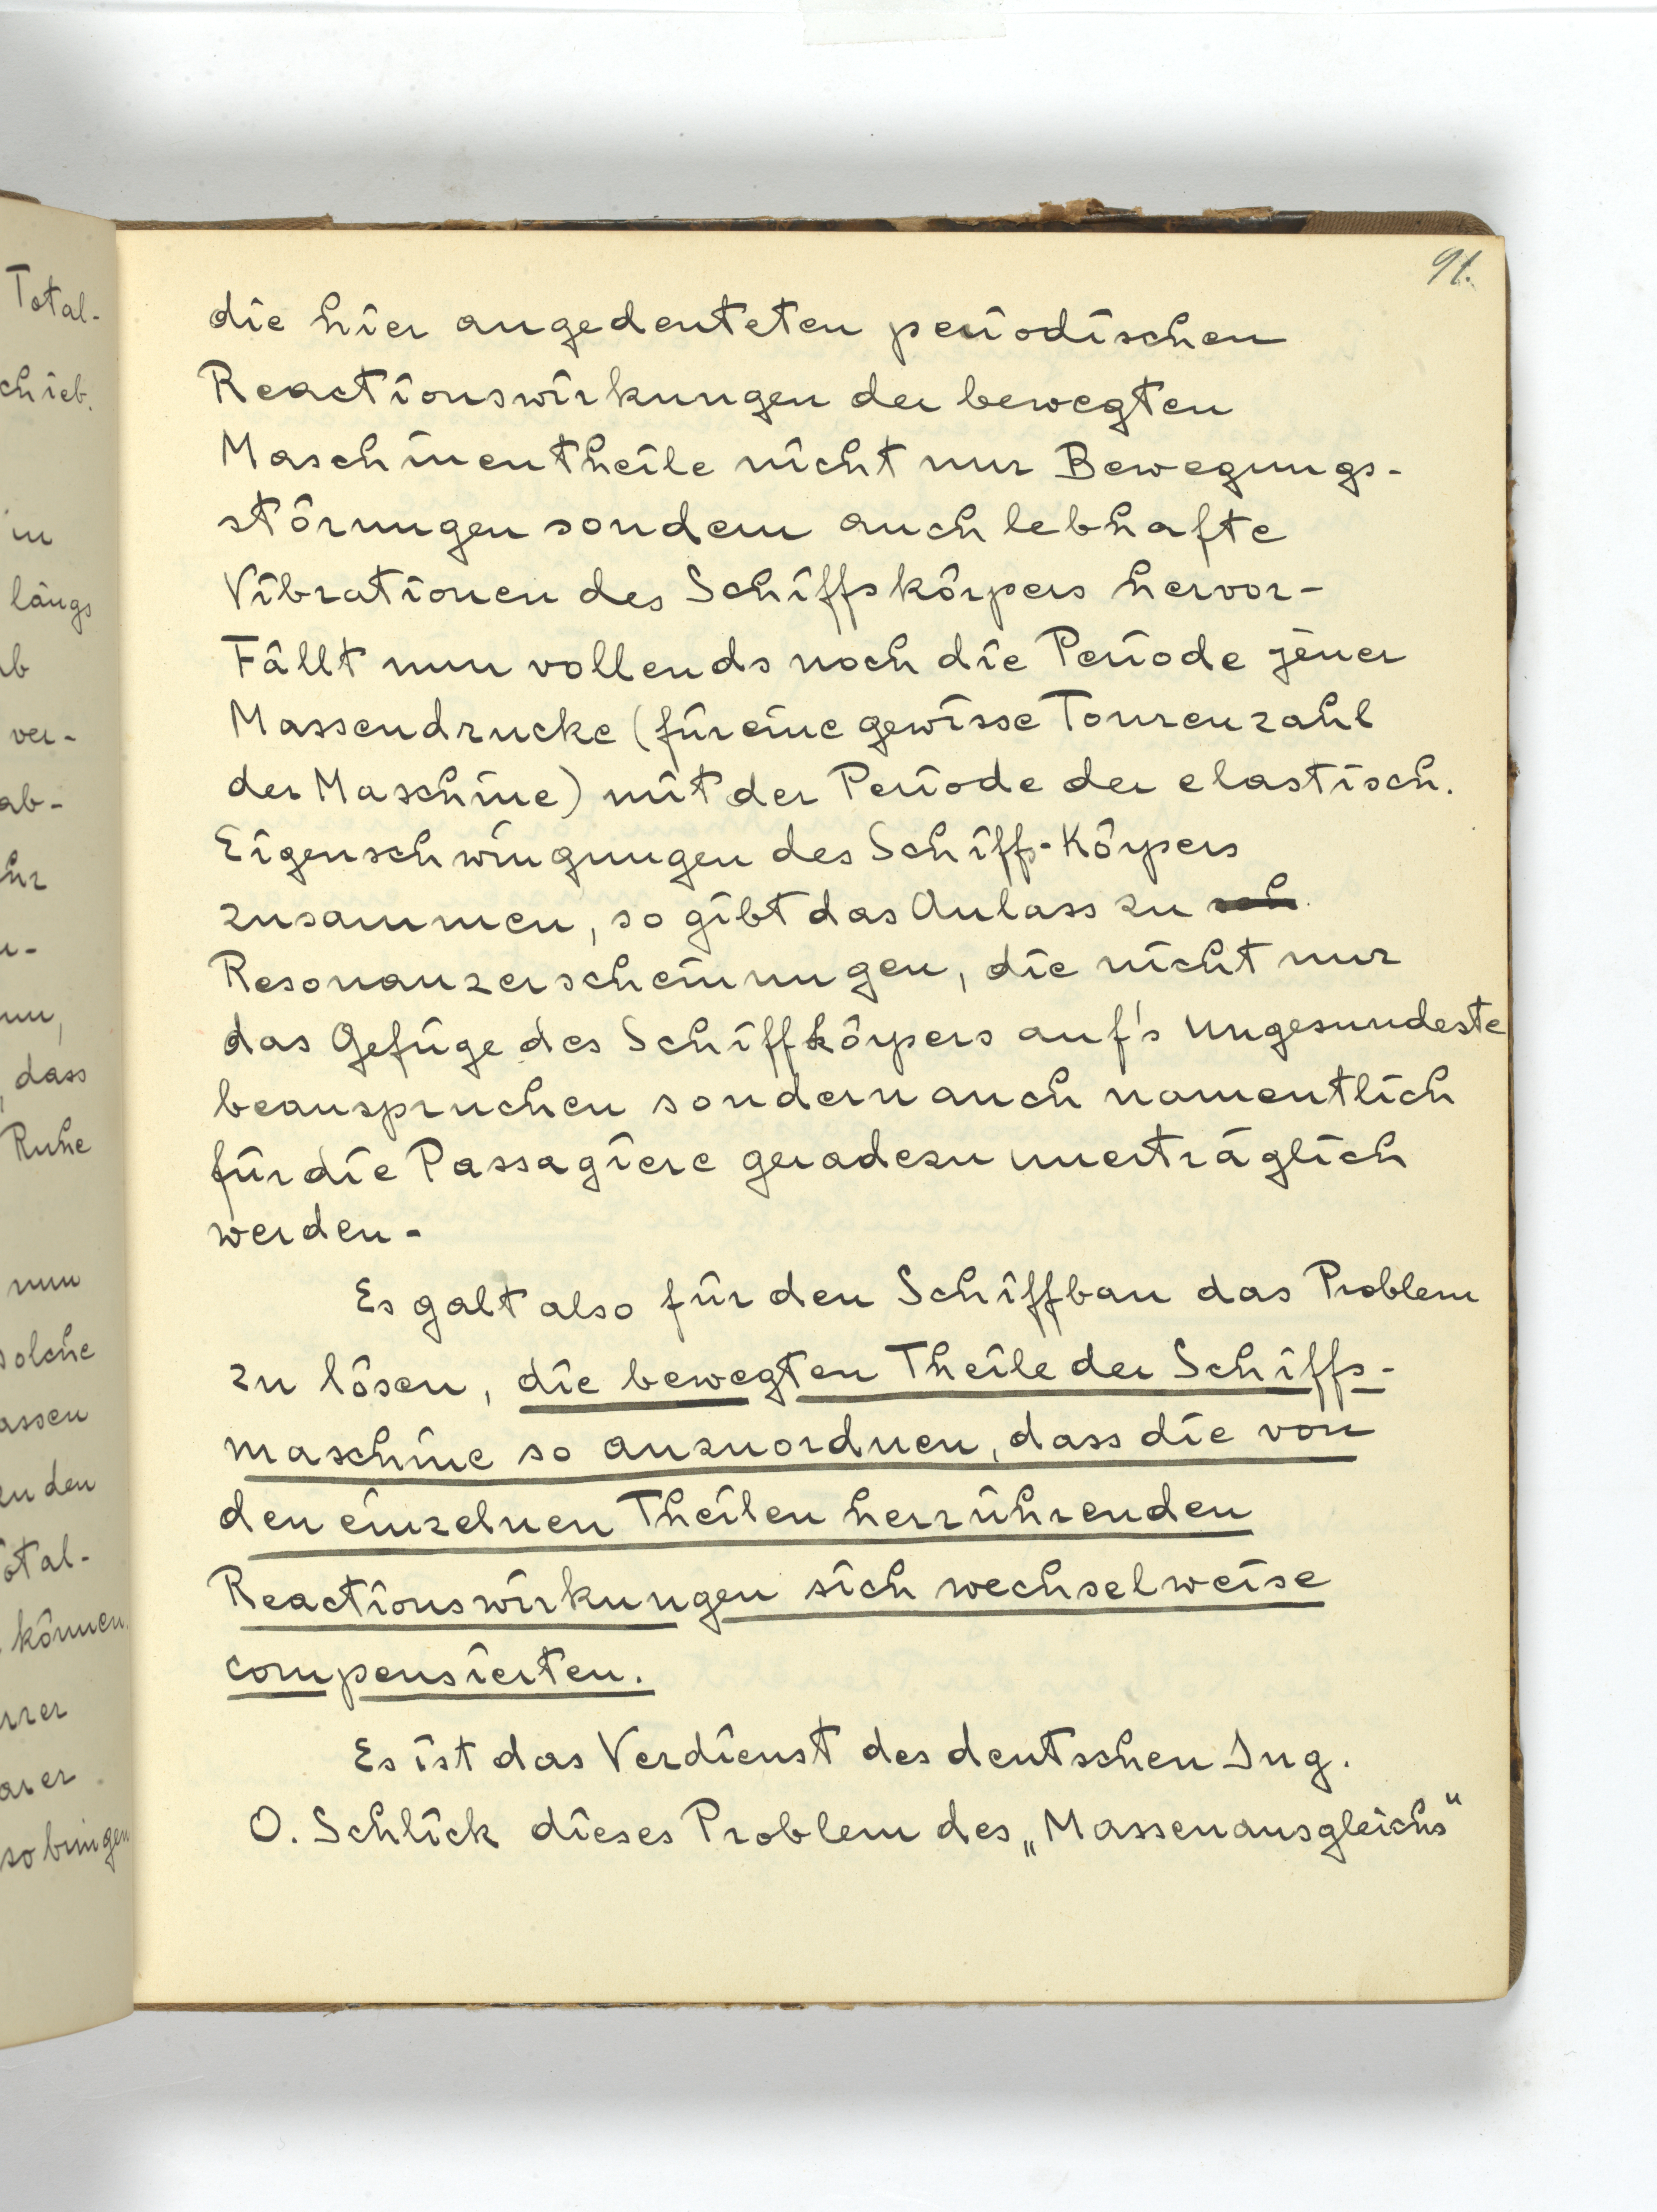 91.
die hier angedeuteten periodischen
Reactionswirkungen der bewegten
Maschinentheile nicht nur Bewegungs-
störungen sondern auch lebhafte
Vibrationen des Schiffskörpers hervor-
Fällt nun vollends noch die Periode jener
Massendrucke (für eine gewisse Tourenzahl
der Maschine) mit der Periode der elastisch.
Eigenschwingungen des Schiff-Körpers
zusammen, so gibt das Anlass zu sch
Resonanzerscheinungen, die nicht nur
das Gefüge des Schiffkörpers auf's Ungesundeste
beanspruchen sondern auch namentlich
für die Passagiere geradezu unerträglich
werden-
Es galt also für den Schiffbau das Problem
zu lösen, die bewegten Theile der Schiffs-
maschine so anzuordnen, dass die von
den einzelnen Theilen herrührenden
Reactionswirkungen sich wechselweise
compensierten.
Es ist das Verdienst des deutschen Ing.
O. Schlick dieses Problem des „Massenausgleichs“
Total-
chieb.
in
längs
ver-
ab-
dass
Ruhe
nun
solche
assen
zu den
Total-
können.
so bringen